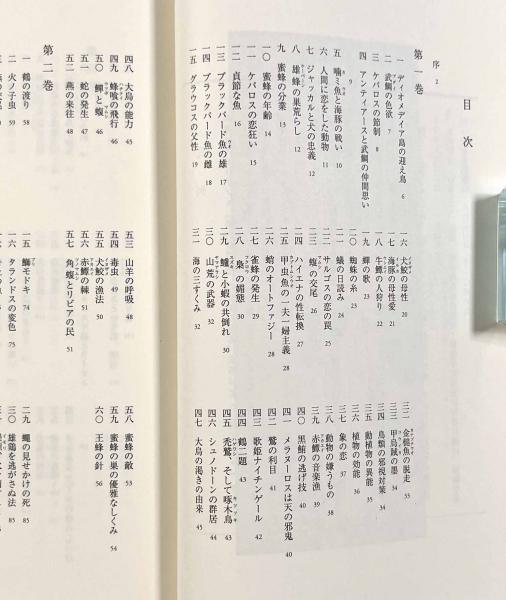 目次
序 2
第一巻
一 ディオメディア島の迎え鳥 6
二 武鯛の色欲 7
三 ケパロスの節制 8
四 アンティアースと武鯛の仲間思い 9
五 噛ミ魚と海豚の戦い 10
六 人間に恋をした動物 11
七 ジャッカルと犬の忠義 12
八 雄蜂の巣荒らし 12
九 蜜蜂の分業 13
一〇 蜜蜂の年齢 14
一一 ケパロスの恋狂い 15
一二 貞節な魚 16
一三 ブラックバード魚の雄 17
一四 ブラックバード魚の雌 18
一五 グラウコスの父性 19
一六 犬鮫の母性 20
一七 海豚の母性愛 21
一八 牛鱝の人狩り 22
一九 蟬の歌 23
二〇 蜘蛛の糸 23
二一 蟻の日読み 24
二二 サルゴスの恋の罠 25
二三 蝮の交尾 26
二四 ハイエナの性転換 27
二五 甲虫魚の一夫一婦主義 28
二六 蛸のオートファジー 28
二七 雀蜂の発生 29
二八 梟の媚態 30
二九 鱸と小蝦の共倒れ 30
三〇 山荒の武器 32
三一 海の三すくみ 32
三二 金槌魚の脱走 33
三三 甲烏賊の墨 34
三四 鳥類の邪視対策 34
三五 動植物の異能 35
三六 植物の効能 36
三七 象の恋 37
三八 動物の嫌うもの 38
三九 赤鱏の音楽漁 39
四〇 黒鮪の逃げ技 40
四一 メラヌーロスは天の邪鬼 40
四二 鷲の利目 41
四三 歌姫ナイチンゲール 42
四四 鶴二題 43
四五 禿鷲、そして啄木鳥 43
四六 シュノドーンの群居 44
四七 大鳥の渇きの由来 45
四八 大鳥の能力 45
四九 蜂喰の飛行 46
五〇 鱓と蝮 46
五一 蛇の発生 47
五二 燕の来往 48
五三 山羊の呼吸 48
五四 毒虫 49
五五 犬鮫の漁法 50
五六 赤鱏の棘 51
五七 角蝮とリビアの民 51
五八 蜜蜂の敵 53
五九 蜜蜂の巣の優雅なしくみ 54
六〇 王蜂の針 56
第二巻
一 鶴の渡り 58
二 火ノ子虫 59
一五 鰤モドキ 74
一六 タランドスの変色 75
二九 蠅の見せかけの死 85
三〇 雄鶏を逃がさぬ法 85